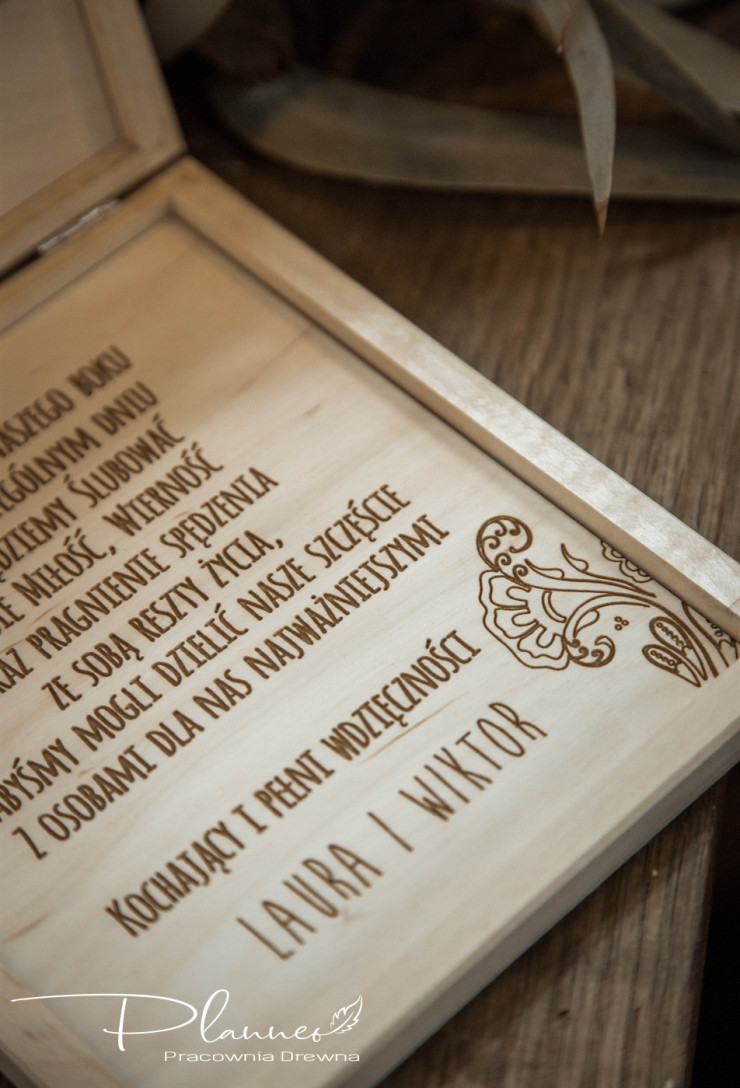 BOKU
DNIU
ŚLUBOWAĆ
MIŁOŚĆ, WIERNOŚĆ
PRAGNIENIE SPĘDZENIA
ZE SOBĄ RESZTY ŻYCIA,
ABYŚMY MOGLI DZIELIĆ NASZE SZCZĘŚCIE
Z OSOBAMI DLA NAS NAJWAŻNIEJSZYMI
KOCHAJĄCY I PEŁNI WDZIĘCZNOŚCI
LAURA I WIKTOR
Planneo
Pracownia Drewna